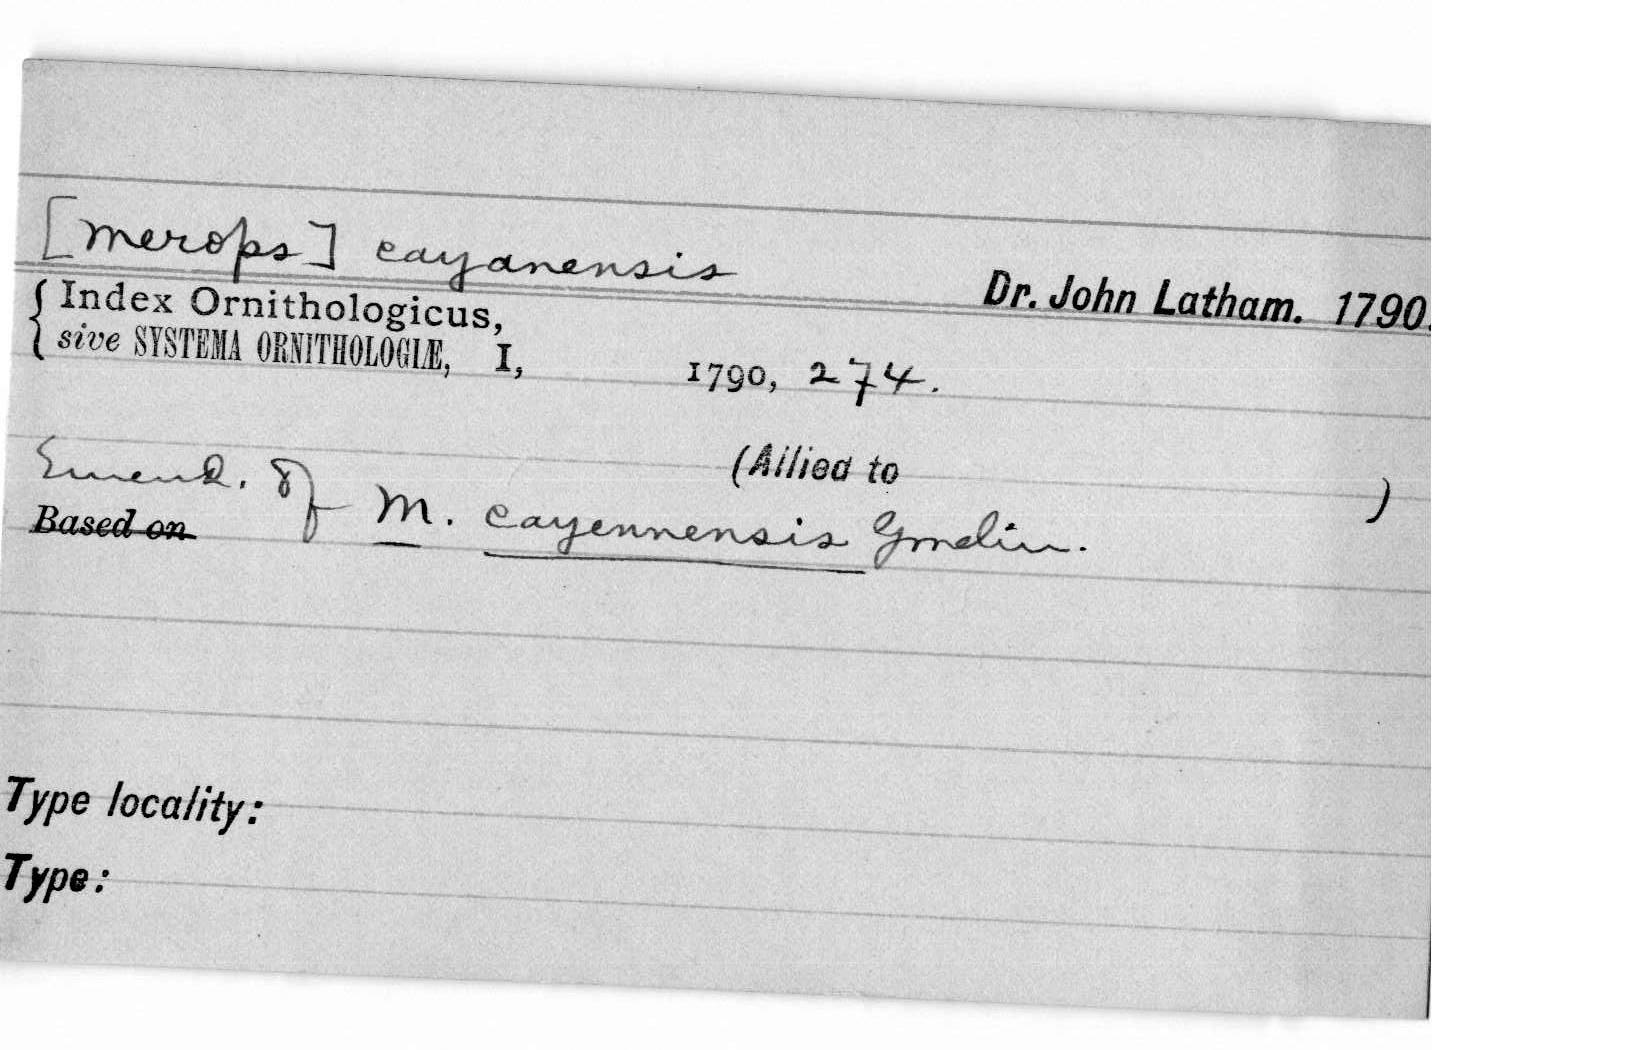 [Merops] cayanensis
Dr. John Latham. 1790.
Index Ornithologicus,
sive SYSTEMA ORNITHOLOGIÆ, I, 1790, 274.
(Allied to )
Emend. of M. cayennensis Gmelin.
Based on
Type locality:
Type: